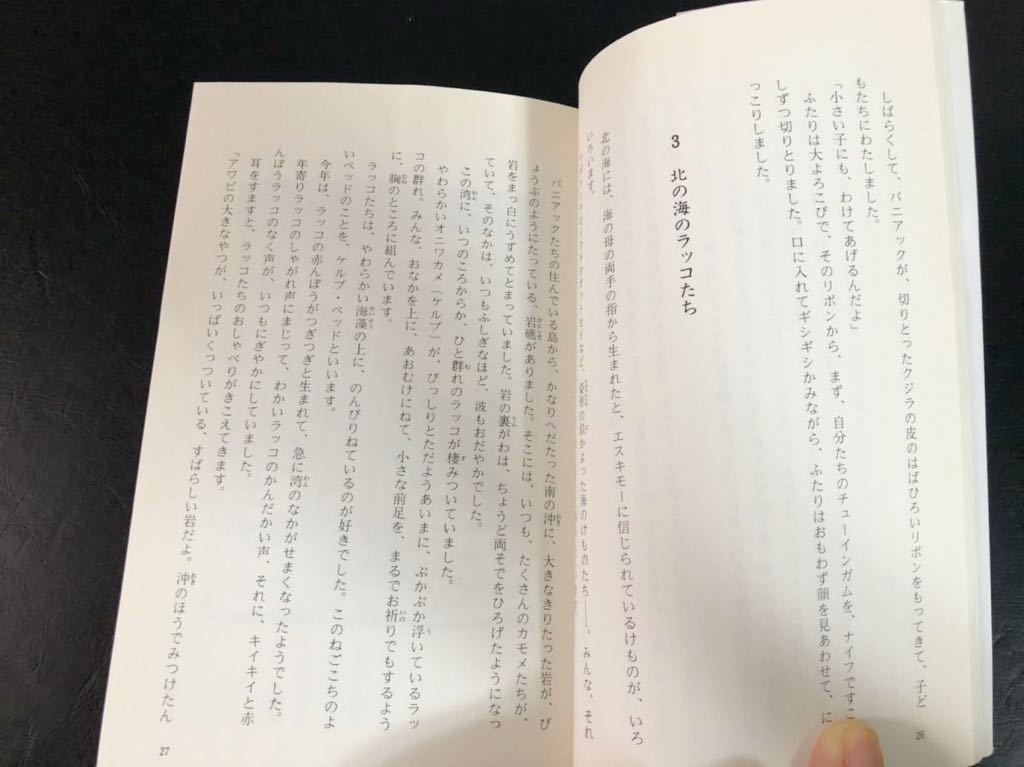 しばらくして、パニアックが、切りとったクジラの皮のはばひろいリボンをもってきて、子ど
もたちにわたしました。
「小さい子にも、わけてあげるんだよ」
ふたりは大よろこびで、そのリボンから、まず、自分たちのチューインガムを、ナイフですこ
しずつ切りとりました。口に入れてギシギシかみながら、ふたりはおもわず顔を見あわせて、に
っこりしました。
3 北の海のラッコたち
北の海には、海の母の両手の指から生まれたと、エスキモーに信じられているけものが、いろ
いろいます。
海のけものたち――。みんな、それ
26
パニアックたちの住んでいる島から、かなりへだたった南の沖に、大きなきりたった岩が、び
ょうぶのようにたっている、岩礁がありました。そこには、いつも、たくさんのカモメたちが、
岩をまっ白にうずめてとまっていました。岩の裏がわは、ちょうど両そでをひろげたようになっ
ていて、そのなかは、いつもふしぎなほど、波もおだやかでした。
この湾に、いつのころからか、ひと群れのラッコが棲みついていました。
やわらかいオニワカメ（ケルプ）が、びっしりとただようあいまに、ぷかぷか浮いているラッ
コの群れ。みんな、おなかを上に、あおむけにねて、小さな前足を、まるでお祈りでもするよう
に、胸のところに組んでいます。
ラッコたちは、やわらかい海藻の上に、のんびりねているのが好きでした。このねごこちのよ
いベッドのことを、ケルプ・ベッドといいます。
今年は、ラッコの赤んぼうがつぎつぎと生まれて、急に湾のなかがせまくなったようでした。
年寄りラッコのしゃがれ声にまじって、わかいラッコのかんだかい声、それに、キイキイと赤
んぼうラッコのなく声が、いつもにぎやかにしていました。
耳をすますと、ラッコたちのおしゃべりがきこえてきます。
「アワビの大きなやつが、いっぱいくっついている、すばらしい岩だよ。沖のほうでみつけたん
27